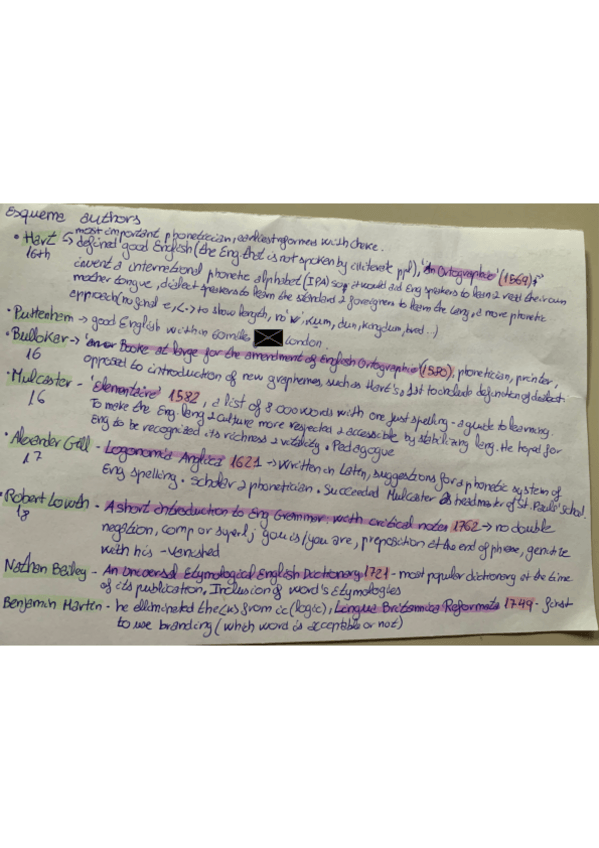 Esqueme authors
• Hart → most important phonetician, earliest reformers with cheke.
16th defined good English (the Eng that is not spoken by illiterate ppl), 'An Ortographie' (1569),
invent a international phonetic alphabet (IPA) say it would aid Eng speakers to learn 2 read their own
mother tongue, dialect speakers to learn the standard 2 foreigners to learn the leng, a more phonetic
approach (no final e, <.> to show length, no 'w', kum, dun, kingdum, bred...)
• Puttenham → good English within 60miles London.
• Bullokar → Booke at large for the amendment of English Ortographie (1580), phonetician, printer,
16 opposed to introduction of new graphemes, such as Hart's, 1st to include definition of dialect.
• Mulcaster - 'Elementarie' 1582, a list of 8000 words with one just spelling - a guide to learning.
16 To make the Eng. leng 2 culture more respected 2 accessible by stabilizing leng. He hoped for
Eng to be recognized its richness 2 vitality. Pedagogue
• Alexander Gill - Logonomia Anglica 1621 → written in Laten, suggestions for a phonetic system of
17 Eng spelling. scholar 2 phonetician. Succeeded Mulcaster as headmaster of St. Pauls' school.
• Robert Lowth - A short introduction to Eng Grammar, with critical notes 1762 → no double
18 negation, comp or superl; you is/you are, preposition at the end of phrase, genitive
with his - vanished
Nathan Bailey - An Universal Etymological English Dictionary 1721 - most popular dictionary at the time
of its publication, Inclusion of word's Etymologies
Benjamin Marten - he elleminated the <k> from ic (logic), Lingua Britannica Reformata 1749 - first
to use branding (which word is acceptable or not)